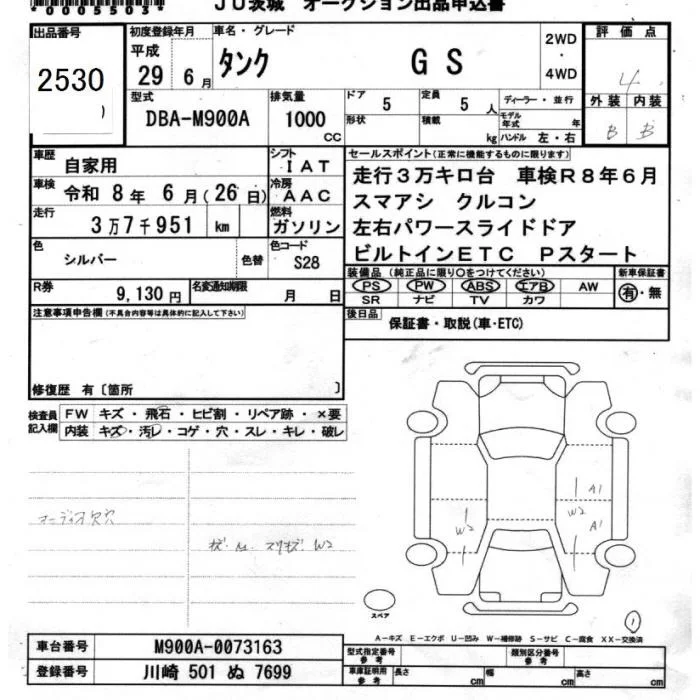 *0005503*
JU茨城 オークション出品申込書
出品番号
2530
初度登録年月
平成
29 6月
車名・グレード
タンク GS
2WD
・
4WD
評価点
4
外装 内装
B B
型式
DBA-M900A
排気量
1000
CC
ドア 5
定員 5人
形状
積載 kg
ディーラー・並行
モデル年式 年
ハンドル 左・右
車歴 自家用
シフト IAT
車検 令和 8年 6月(26日)
冷房 AAC
走行 3万7千951 km
燃料 ガソリン
色 シルバー 色替
色コード S28
R券 9,130円
名変通知期限 月 日
セールスポイント(正常に機能するものに限ります)
走行3万キロ台 車検R8年6月
スマアシ クルコン
左右パワースライドドア
ビルトインETC Pスタート
装備品(純正品に限り○をつけてください)
新車保証書
PS PW ABS エアB AW
SR ナビ TV カワ
有・無
後日品
保証書・取説(車・ETC)
注意事項申告欄(不具合内容等は具体的に記入して下さい)
修復歴 有〔箇所 〕
検査員記入欄
FW キズ・飛石・ヒビ割・リペア跡・×要
内装 キズ・汚レ・コゲ・穴・スレ・キレ・破レ
オーディオ欠穴
キズ・A1 スリキズ・W2
W2
A1
W2
A1
スペア
1
A-キズ E-エクボ U-凹み W-補修跡 S-サビ C-腐食 XX-交換済
車台番号 M900A-0073163
登録番号 川崎 501 ぬ 7699
型式指定番号 参考
類別区分番号 参考
車庫証明用 参考
長さ cm 幅 cm 高さ cm